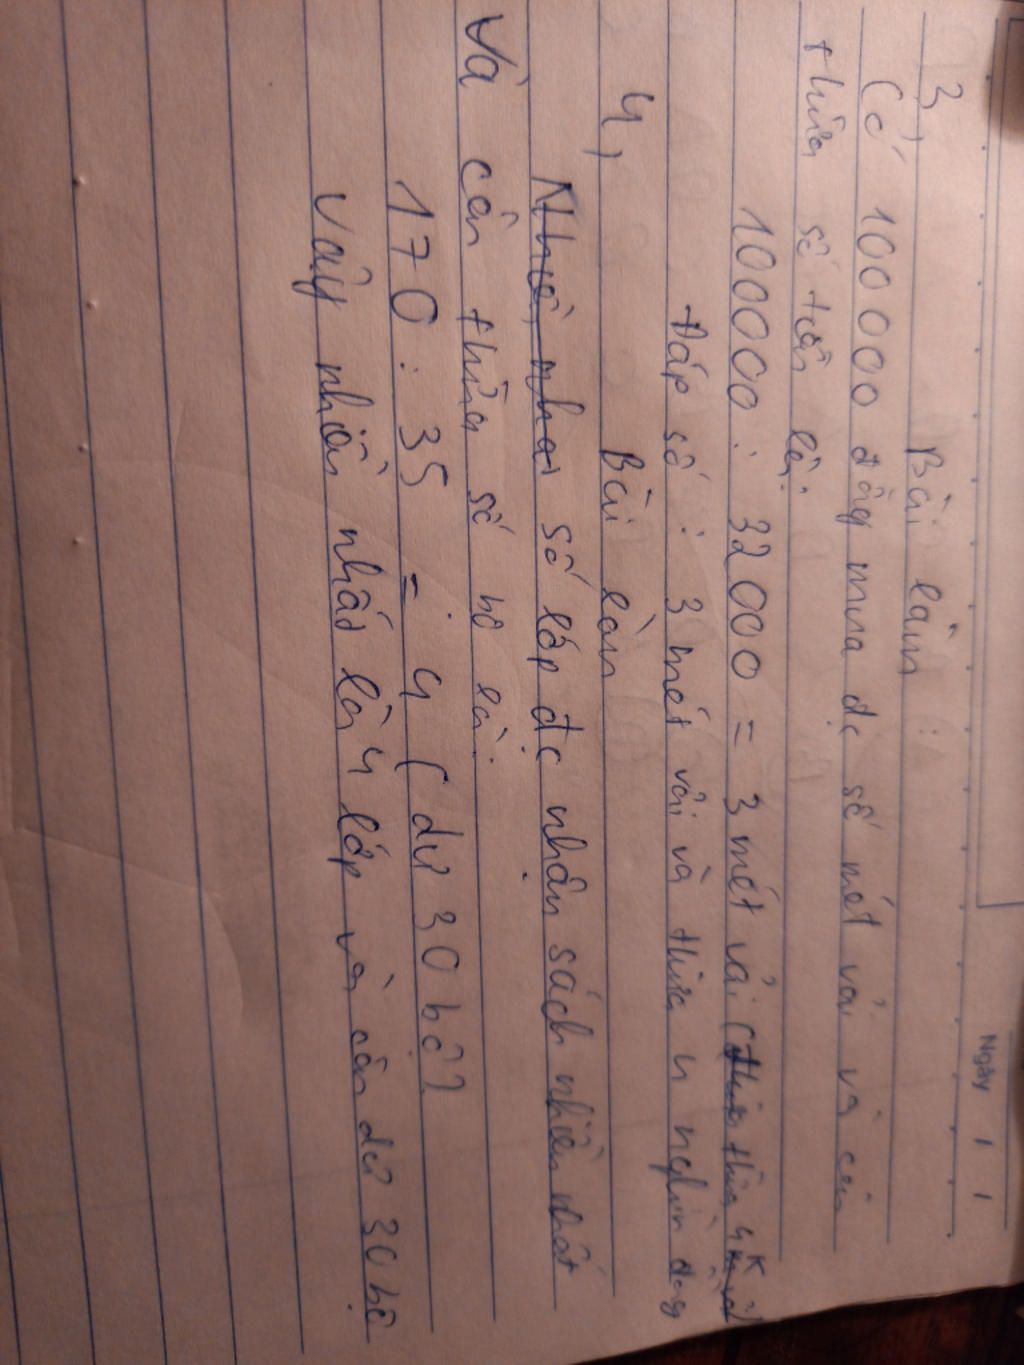 Ngày
3, Bài làm:
Có 100 000 đồng mua đc số mét vải và còn
thừa số tiền là:
100000 : 32000 = 3 mét vải (thừa 4K
Đáp số : 3 mét vải và thừa 4 nghìn đồng
4, Bài làm
số lớp đc nhận sách nhiều nhất
Và còn thừa số bộ là:
170 : 35 = 4 (dư 30 bộ)
Vậy nhiều nhất là 4 lớp và còn dư 30 bộ